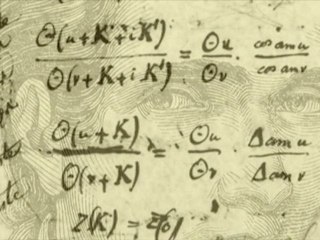 Θ(u+K+iK') / Θ(v+K+iK') = Θu / Θv · cos am u / cos am v
Θ(u+K) / Θ(v+K) = Θu / Θv · Δam u / Δam v
Z(K) = Z(0)